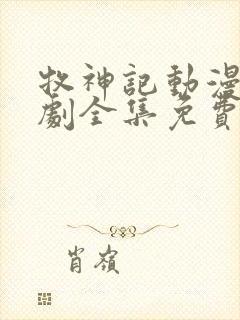 牧神記動漫
劇全集免費
肖嶺